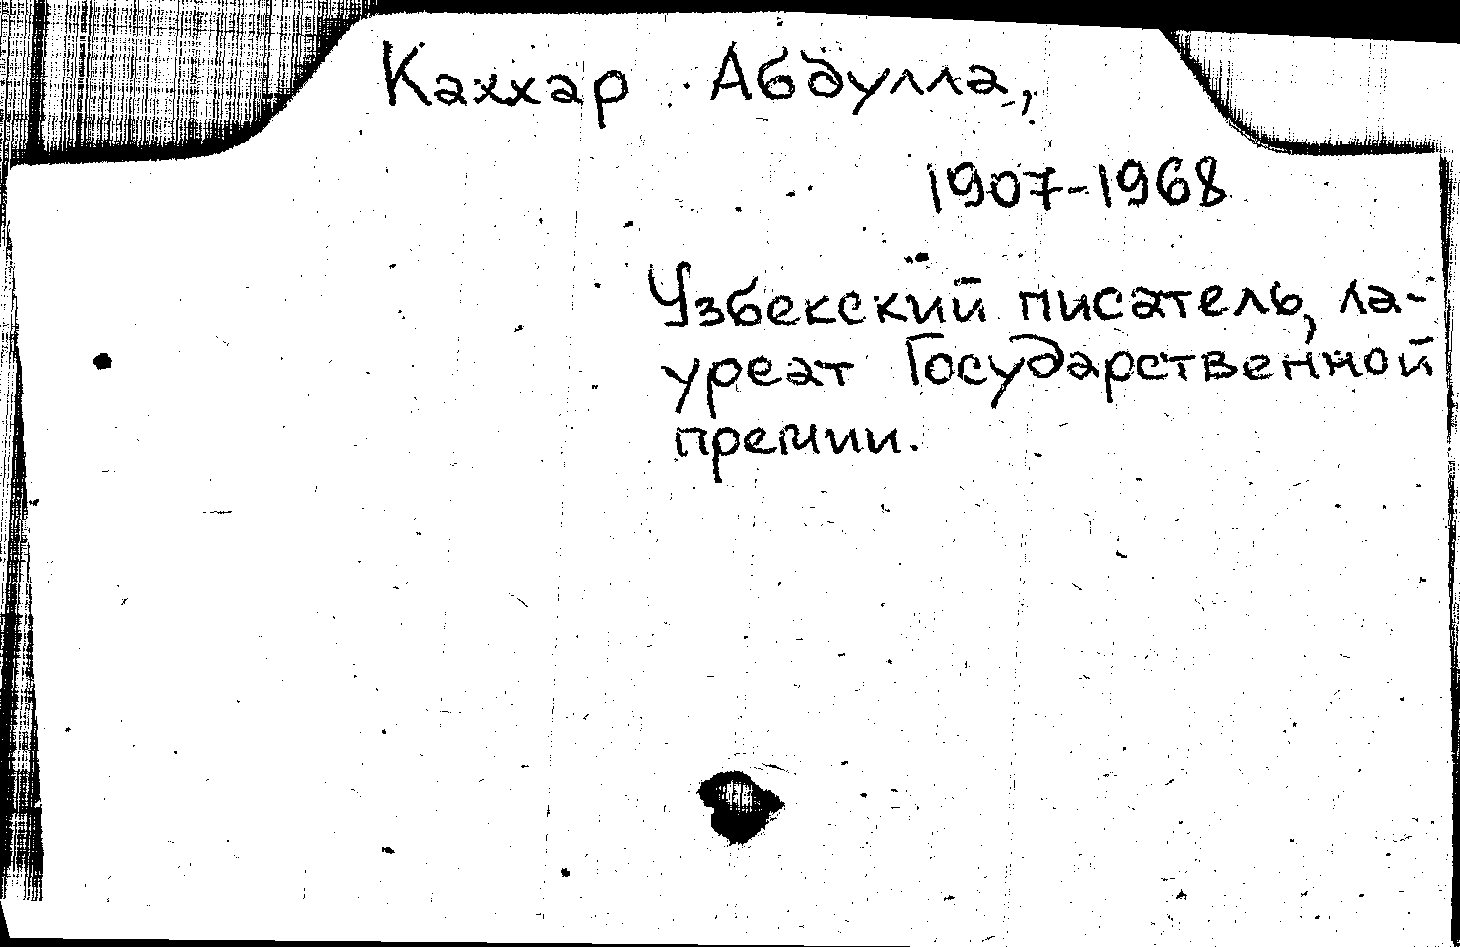 Каххар Абдулла,
1907-1968
Узбекский писатель, ла-
уреат Государственной
премии.